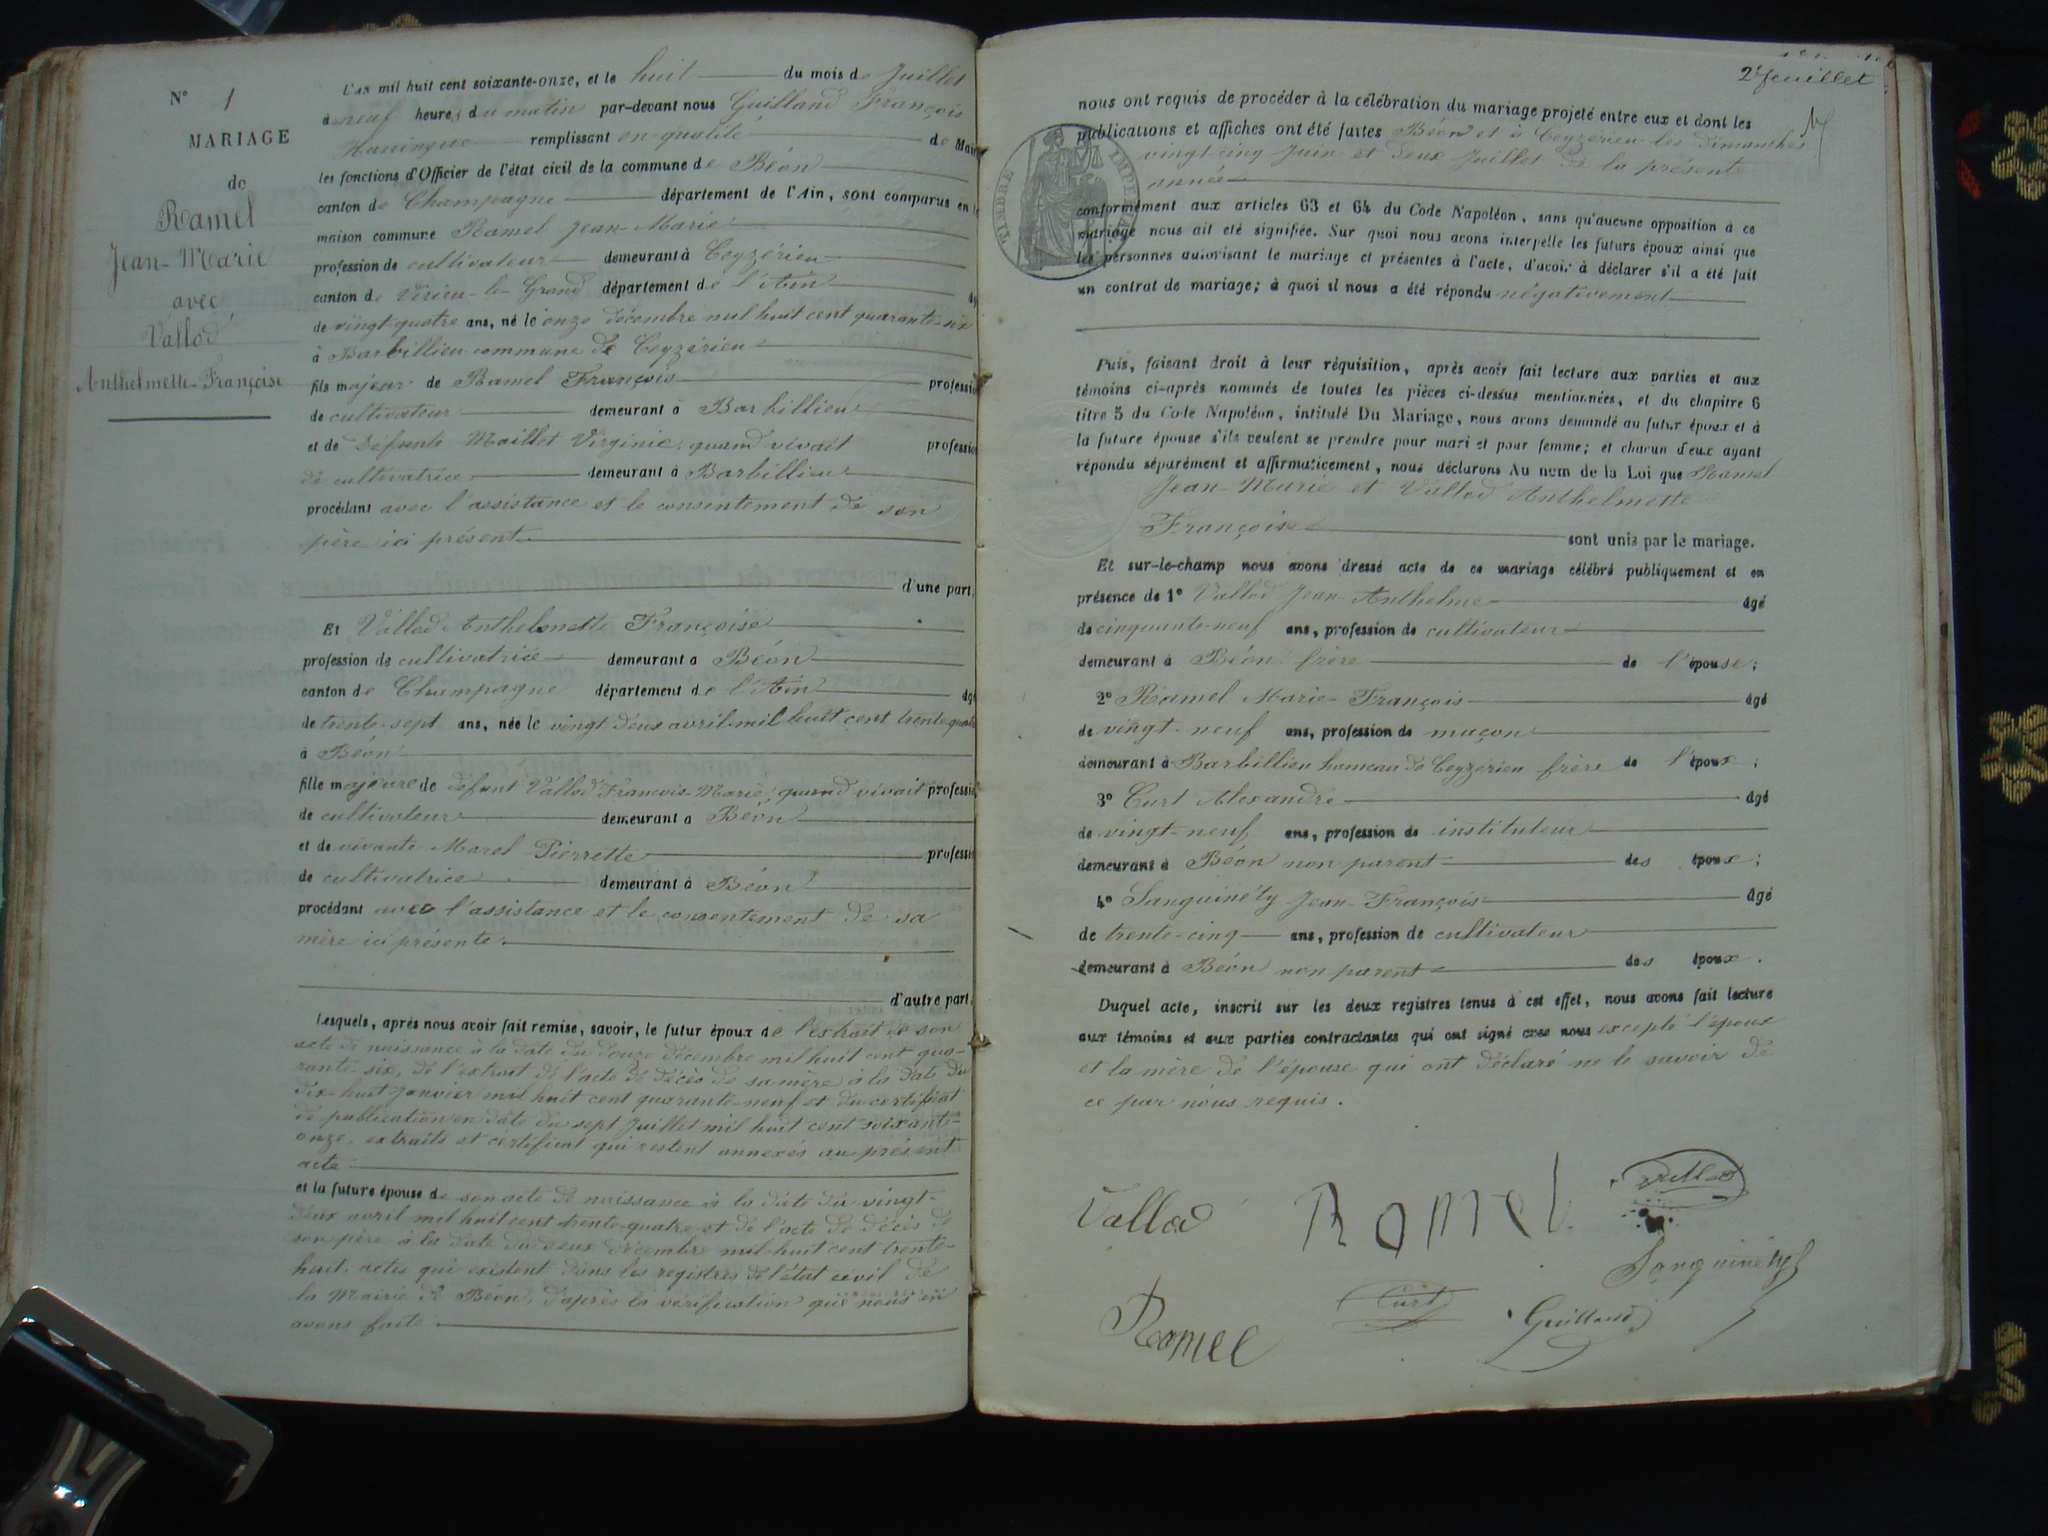 N° 1
MARIAGE
de
Ramel
Jean-Marie
avec
Vallod
Anthelmette-Françoise
L'an mil huit cent soixante-onze, et le huit du mois de Juillet
à neuf heures du matin par-devant nous Guilland François
remplissant en qualité de Mai
les fonctions d'Officier de l'état civil de la commune de Béon
canton de Champagne département de l'Ain, sont comparus en
maison commune Ramel Jean-Marie
profession de cultivateur demeurant à Ceyzérieu
canton de Virieu-le-Grand département de l'Ain
de vingt-quatre ans, né le onze décembre mil huit cent quarante-six
à Barbillieu commune de Ceyzérieu
fils majeur de Ramel François professio
de cultivateur demeurant à Barbillieu
et de défunte Maillet Virginie, quand vivait professio
de cultivatrice demeurant à Barbillieu
procédant avec l'assistance et le consentement de son
père ici présent
d'une part,
Et Vallod Anthelmette Françoise
profession de cultivatrice demeurant à Béon
canton de Champagne département de l'Ain âgé
de trente-sept ans, née le vingt-deux avril mil huit cent trente-quatre
à Béon
fille majeure de défunt Vallod François-Marie, quand vivait professio
de cultivateur demeurant à Béon
et de vivante Morel Pierrette professio
de cultivatrice demeurant à Béon
procédant avec l'assistance et le consentement de sa
mère ici présente
d'autre part.
Lesquels, après nous avoir fait remise, savoir, le futur époux de l'extrait de son
acte de naissance à la date du douze décembre mil huit cent qua-
rante-six, de l'extrait de l'acte de décès de sa mère à la date du
dix-huit Janvier mil huit cent quarante-neuf et du certificat
de publication en date du sept Juillet mil huit cent soixante-
onze, extraits et certificat qui restent annexés au présent
acte
et la future épouse de son acte de naissance à la date du vingt-
deux avril mil huit cent trente-quatre et de l'acte de décès de
son père à la date du deux décembre mil huit cent trente-
huit, actes qui existent dans les registres de l'état civil de
la Mairie de Béon, d'après la vérification que nous en
avons faite
2e feuillet
TIMBRE IMPERIAL
nous ont requis de procéder à la célébration du mariage projeté entre eux et dont les
publications et affiches ont été faites Béon et à Ceyzérieu les dimanches
vingt-cinq Juin et deux Juillet de la présente
année
conformément aux articles 63 et 64 du Code Napoléon, sans qu'aucune opposition à ce
mariage nous ait été signifiée. Sur quoi nous avons interpellé les futurs époux ainsi que
les personnes autorisant le mariage et présentes à l'acte, d'avoir à déclarer s'il a été fait
un contrat de mariage; à quoi il nous a été répondu négativement
Puis, faisant droit à leur réquisition, après avoir fait lecture aux parties et aux
témoins ci-après nommés de toutes les pièces ci-dessus mentionnées, et du chapitre 6
titre 5 du Code Napoléon, intitulé Du Mariage, nous avons demandé au futur époux et à
la future épouse s'ils veulent se prendre pour mari et pour femme; et chacun d'eux ayant
répondu séparément et affirmativement, nous déclarons Au nom de la Loi que Ramel
Jean-Marie et Vallod Anthelmette
Françoise
sont unis par le mariage.
Et sur-le-champ nous avons dressé acte de ce mariage célébré publiquement et en
présence de 1° Vallod Jean-Anthelme âgé
de cinquante-neuf ans, profession de cultivateur
demeurant à Béon frère de l'épouse;
2° Ramel Marie-François âgé
de vingt-neuf ans, profession de maçon
demeurant à Barbillieu hameau de Ceyzérieu frère de l'époux;
3° Curt Alexandre âgé
de vingt-neuf ans, profession de instituteur
demeurant à Béon non parent des époux;
4° Sanguinéty Jean-François âgé
de trente-cinq ans, profession de cultivateur
demeurant à Béon non parent des époux.
Duquel acte, inscrit sur les deux registres tenus à cet effet, nous avons fait lecture
aux témoins et aux parties contractantes qui ont signé avec nous excepté l'époux
et la mère de l'épouse qui ont déclaré ne le savoir de
ce par nous requis.
Vallod Ramel Vallod
Sanguinéty
Ramel Curt Guilland